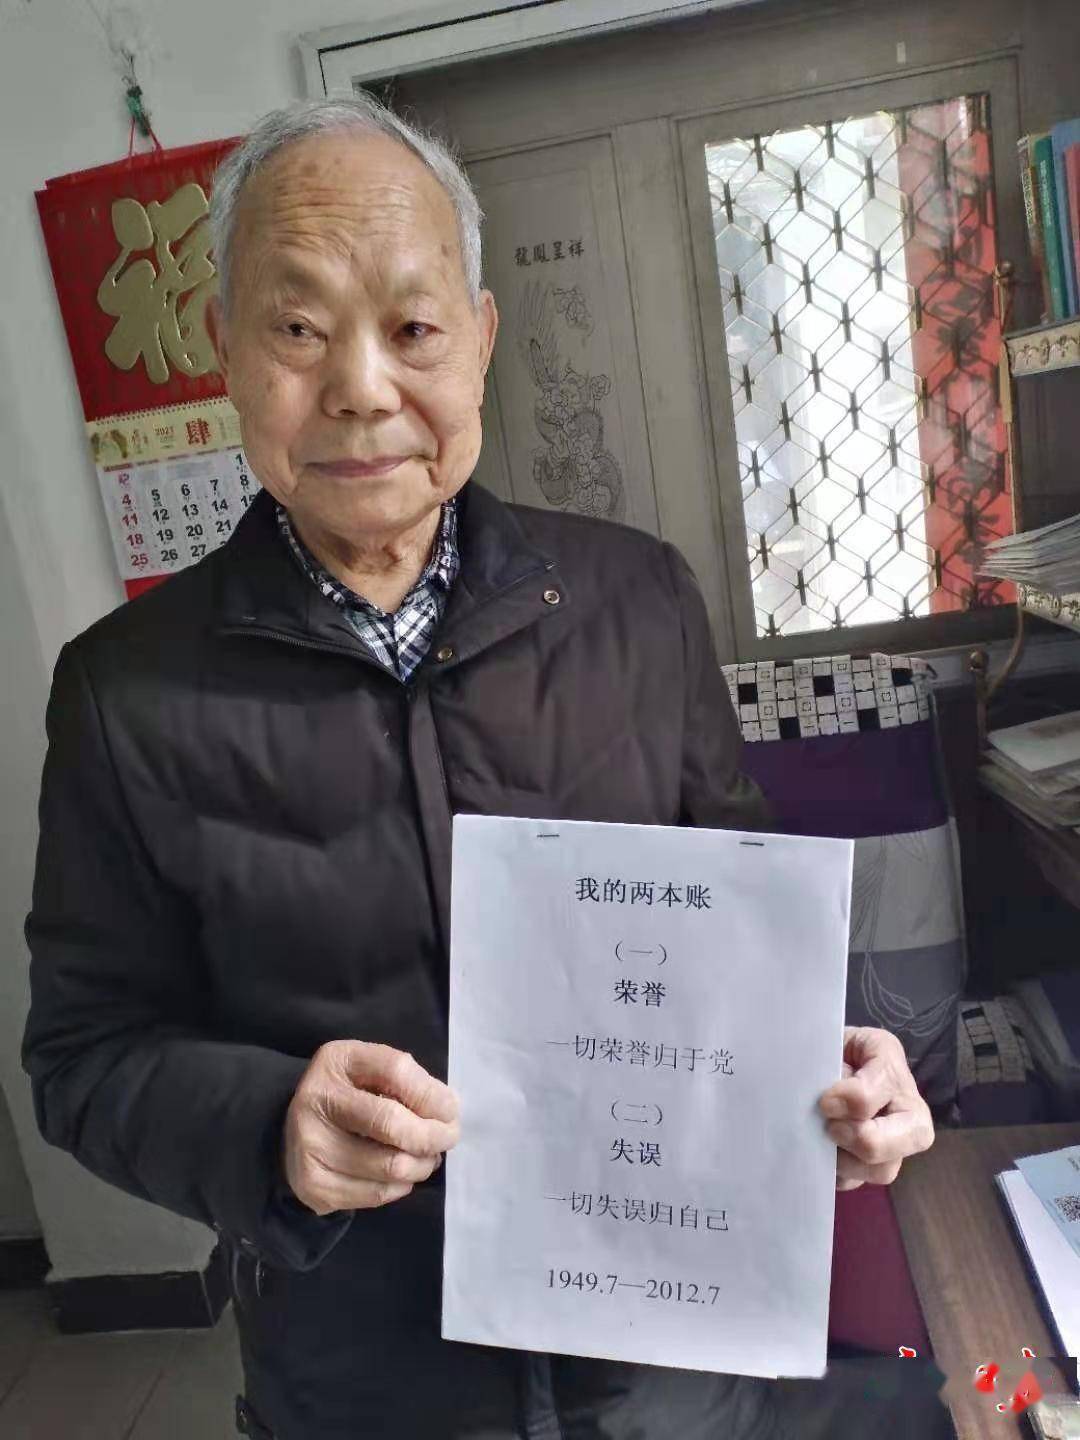 福
2021
1
4 5 6 7 8
11 12 13 14 15
18 19 20 21
25 26 27
龍鳳呈祥
我的两本账
（一）
荣誉
一切荣誉归于党
（二）
失误
一切失误归自己
1949.7—2012.7